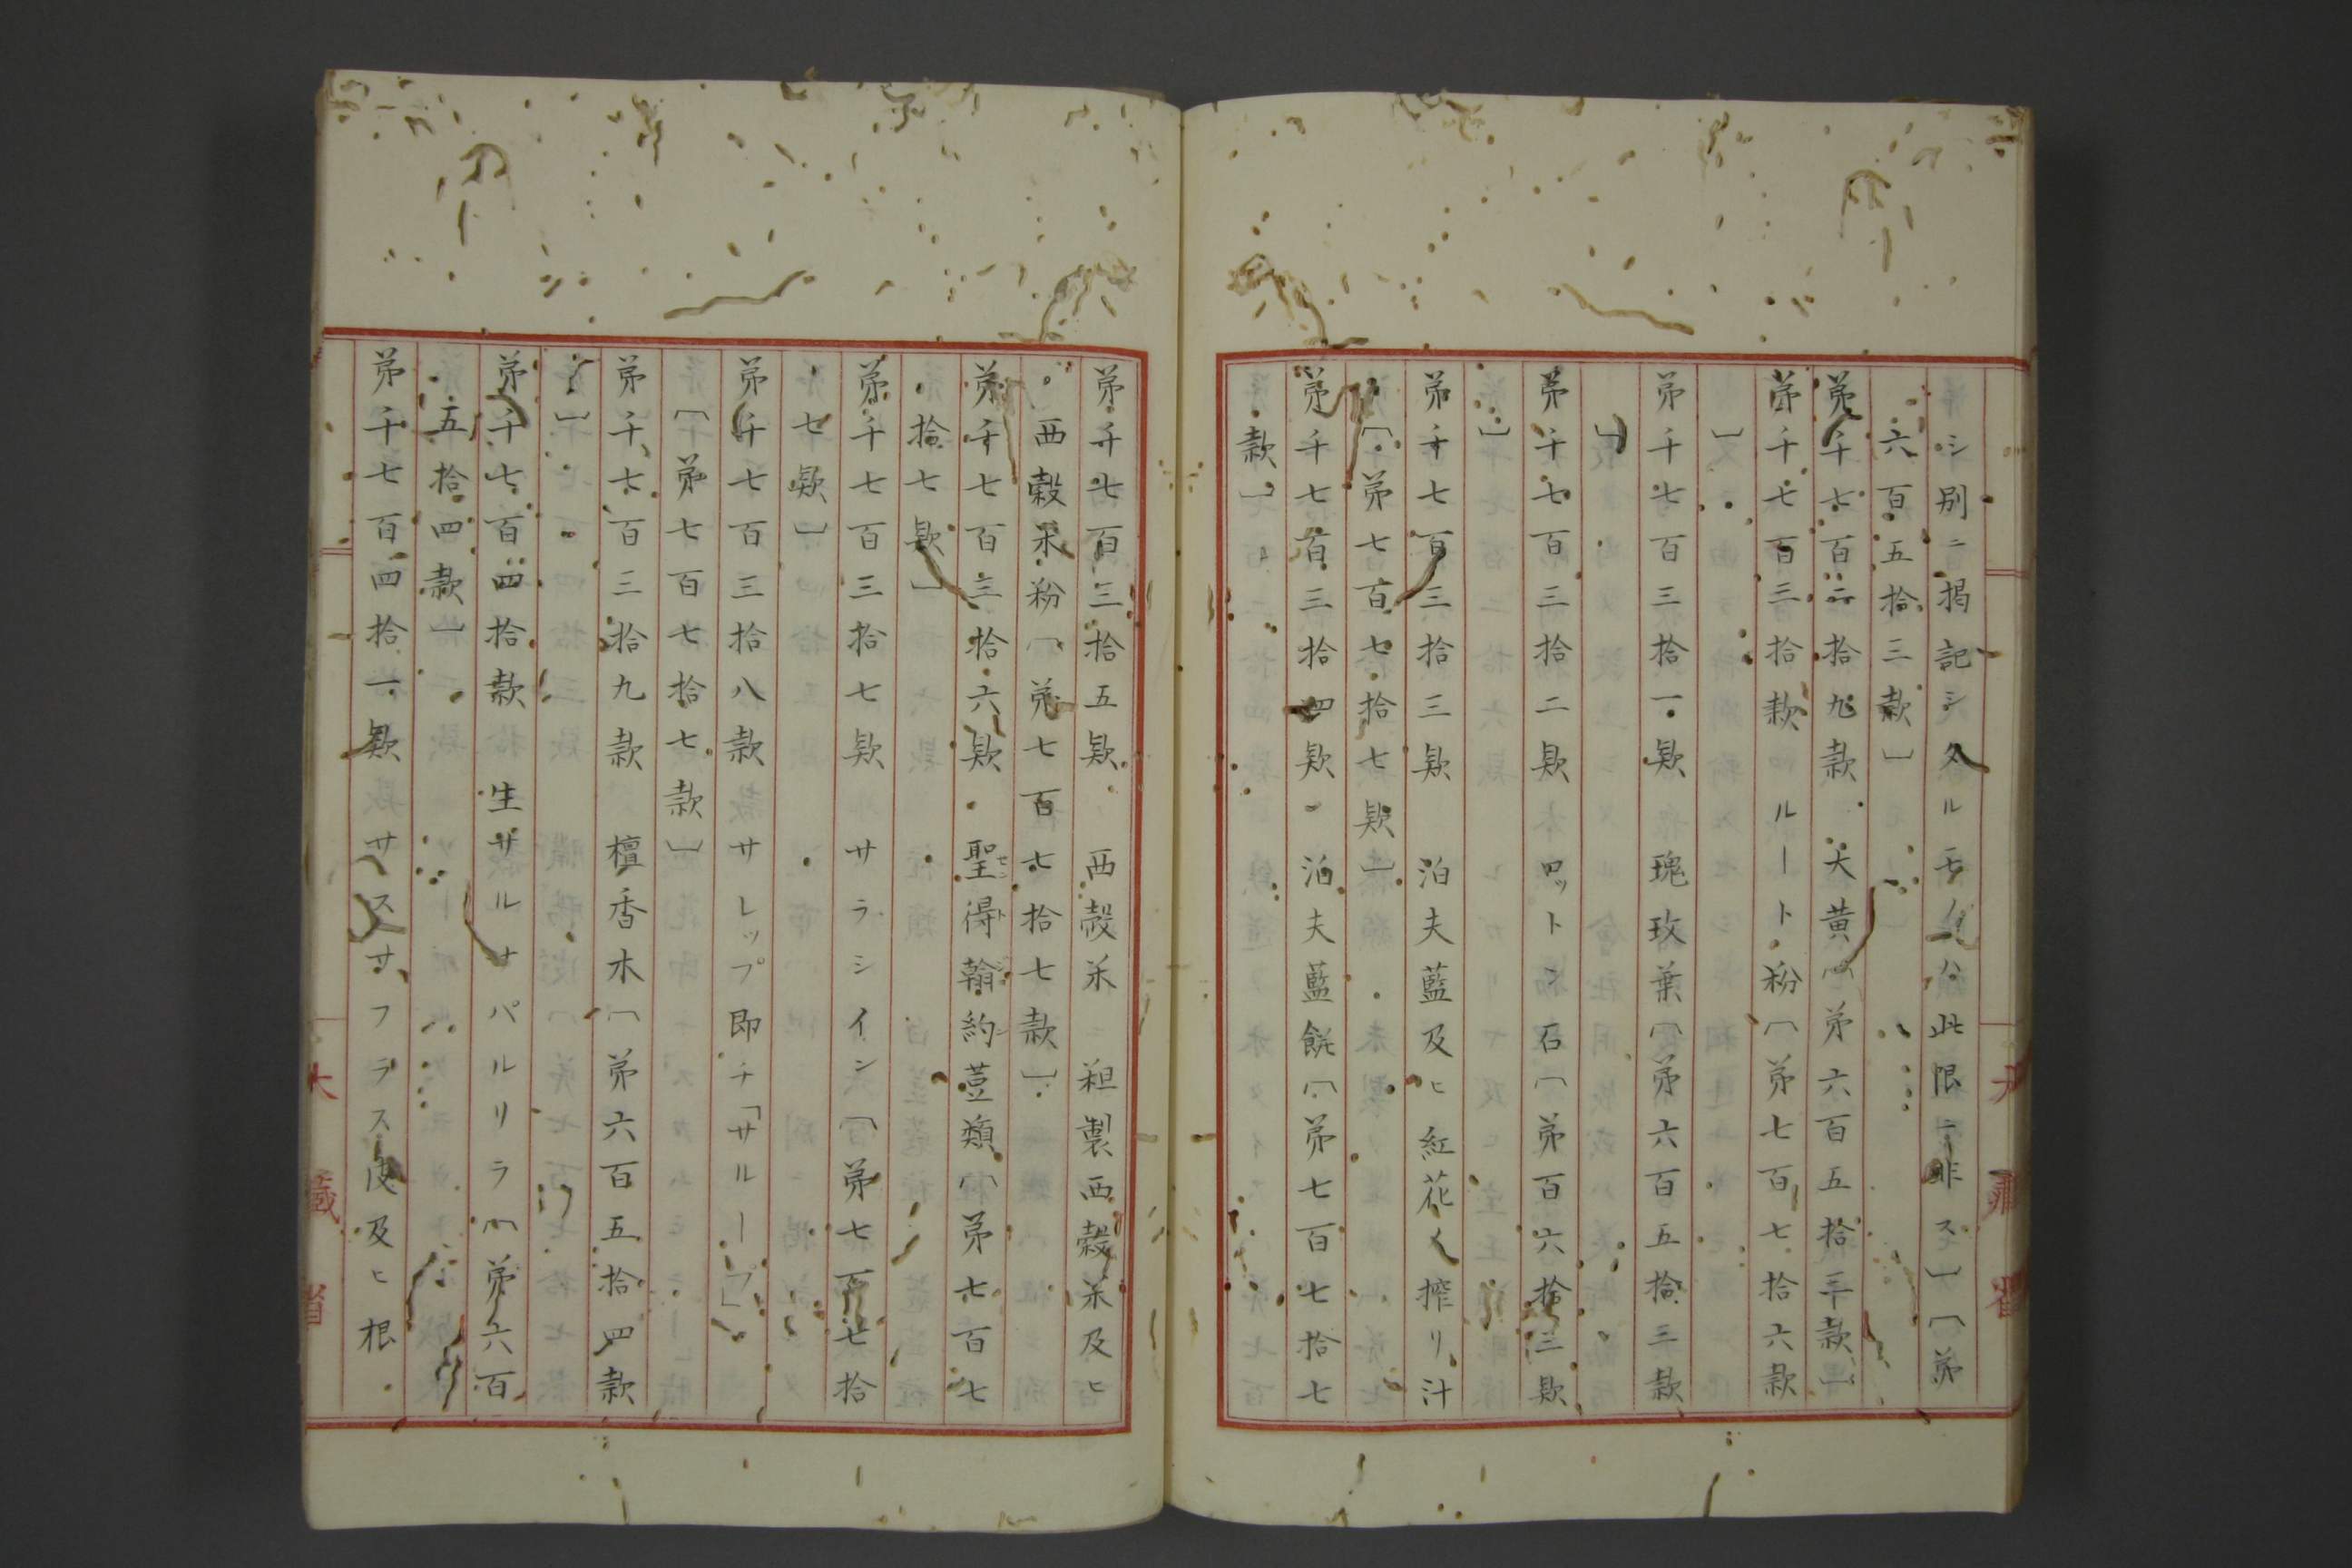 シ別ニ掲記シタルモノハ此限ニ非ス〕〔第
六百五拾三款〕
第千七百二拾九款 大黄〔第六百五拾三款〕
第千七百三拾款 ルート粉〔第七百七拾六款
〕
第千七百三拾一款 瑰玫葉〔第六百五拾三款
〕
第千七百三拾二款 ロットン石〔第百六拾三款
〕
第千七百三拾三款 泊夫藍及ヒ紅花々搾リ汁
〔第七百七拾七款〕
第千七百三拾四款 泊夫藍餅〔第七百七拾七
款〕
第千七百三拾五款 西穀米 粗製西穀米及ヒ
西穀米粉〔第七百七拾七款〕
第千七百三拾六款 聖得翰約荳類〔第七百七
拾七款〕
第千七百三拾七款 サラシイン〔第七百七拾
七款〕
第千七百三拾八款 サレップ即チ「サループ」
〔第七百七拾七款〕
第千七百三拾九款 檀香木〔第六百五拾四款
〕
第千七百四拾款 生サルサパルリラ〔第六百
五拾四款〕
第千七百四拾一款 サスサフラス皮及ヒ根
大藏省